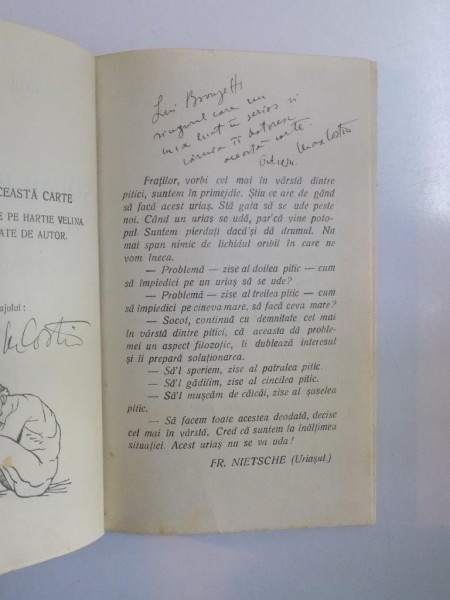 CEASTĂ CARTE
E PE HARTIE VELINA
ATE DE AUTOR.
ajului :
Costin
Lui
singurul care nu
m'a luat în serios și
căruia îi datoresc
această carte.
Max Costin
Fraților, vorbi cel mai în vârstă dintre
pitici, suntem în primejdie. Știu ce are de gând
să facă acest uriaș. Stă gata să se ude peste
noi. Când un uriaș se udă, par'că vine poto-
pul. Suntem pierduți dacă'și dă drumul. Nu
mai spun nimic de lichidul oribil în care ne
vom îneca.
— Problemă — zise al doilea pitic — cum
să împiedici pe un uriaș să se ude?
— Problemă — zise al treilea pitic — cum
să împiedici pe cineva mare, să facă ceva mare?
— Socot, continuă cu demnitate cel mai
în vârstă dintre pitici, că aceasta dă proble-
mei un aspect filozofic, îi dublează interesul
și îi prepară soluționarea.
— Să'l speriem, zise al patrulea pitic.
— Să'l gâdilim, zise al cincilea pitic.
— Să'l mușcăm de călcâi, zise al șaselea
pitic.
— Să facem toate acestea deodată, decise
cel mai în vârstă. Cred că suntem la înălțimea
situației. Acest uriaș nu se va uda!
FR. NIETSCHE (Uriașul.)